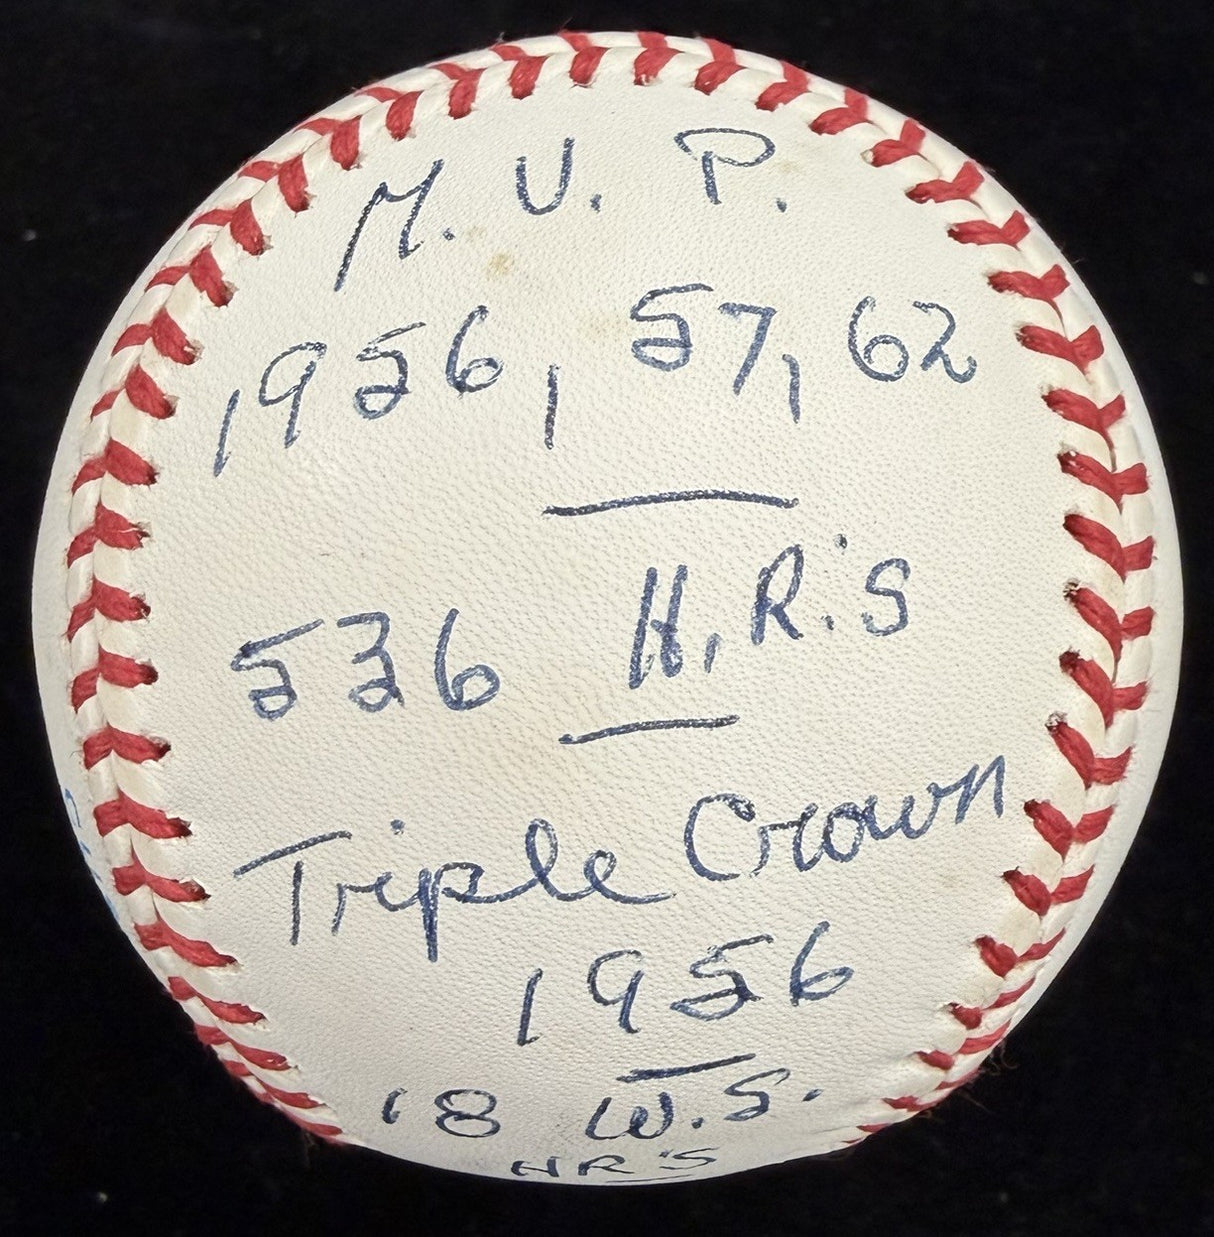 M. V. P.
1956, 57, 62
536 H.R.'s
Triple Crown
1956
18 W.S.
HR'S